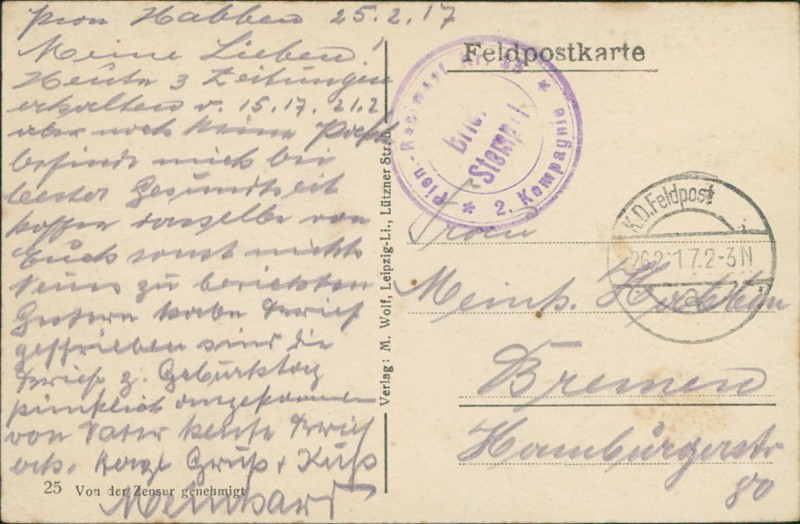 Pion Habben 25.2.17
Meine Lieben!
Heute 3 Zeitungen
erhalten v. 15.17.21.2
aber noch keine Post
befinde mich bei
bester Gesundheit
hoffe dasselbe von
Euch sonst nichts
Neues zu berichten
Gestern habe Brief
geschrieben sind die
Briefe z. Geburtstag
pünktlich angekommen
von Vater heute Brief
erh. Herzl Gruß + Kuß
Meinhard
25 Von der Zensur genehmigt
Verlag: M. Wolf, Leipzig-Li., Lützner Straße
Feldpostkarte
Pion-Regiment
Brief
Stempel
* 2. Kompagnie *
K.D.Feldpost
26.2.17.2-3N
a
Frau
Meinh. Habben
Bremen
Hamburgerstr
80